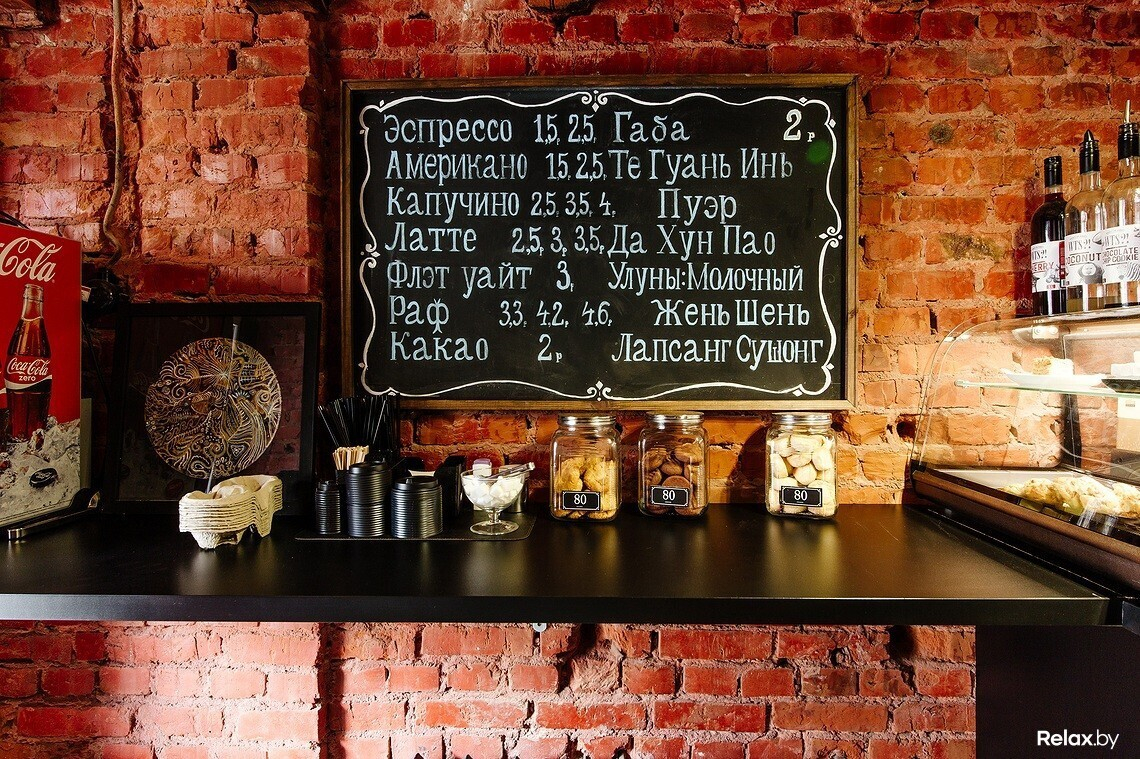 Эспрессо 1,5, 2,5, Габа 2р
Американо 1,5, 2,5, Те Гуань Инь
Капучино 2,5, 3,5, 4, Пуэр
Латте 2,5, 3, 3,5, Да Хун Пао
Флэт уайт 3, Улуны: Молочный
Раф 3,3, 4,2, 4,6, Жень Шень
Какао 2р Лапсанг Сушонг
Cola
Coca-Cola
zero
80
80
80
COCONUT
CHOCOLATE
CHIP COOKIE
Relax.by